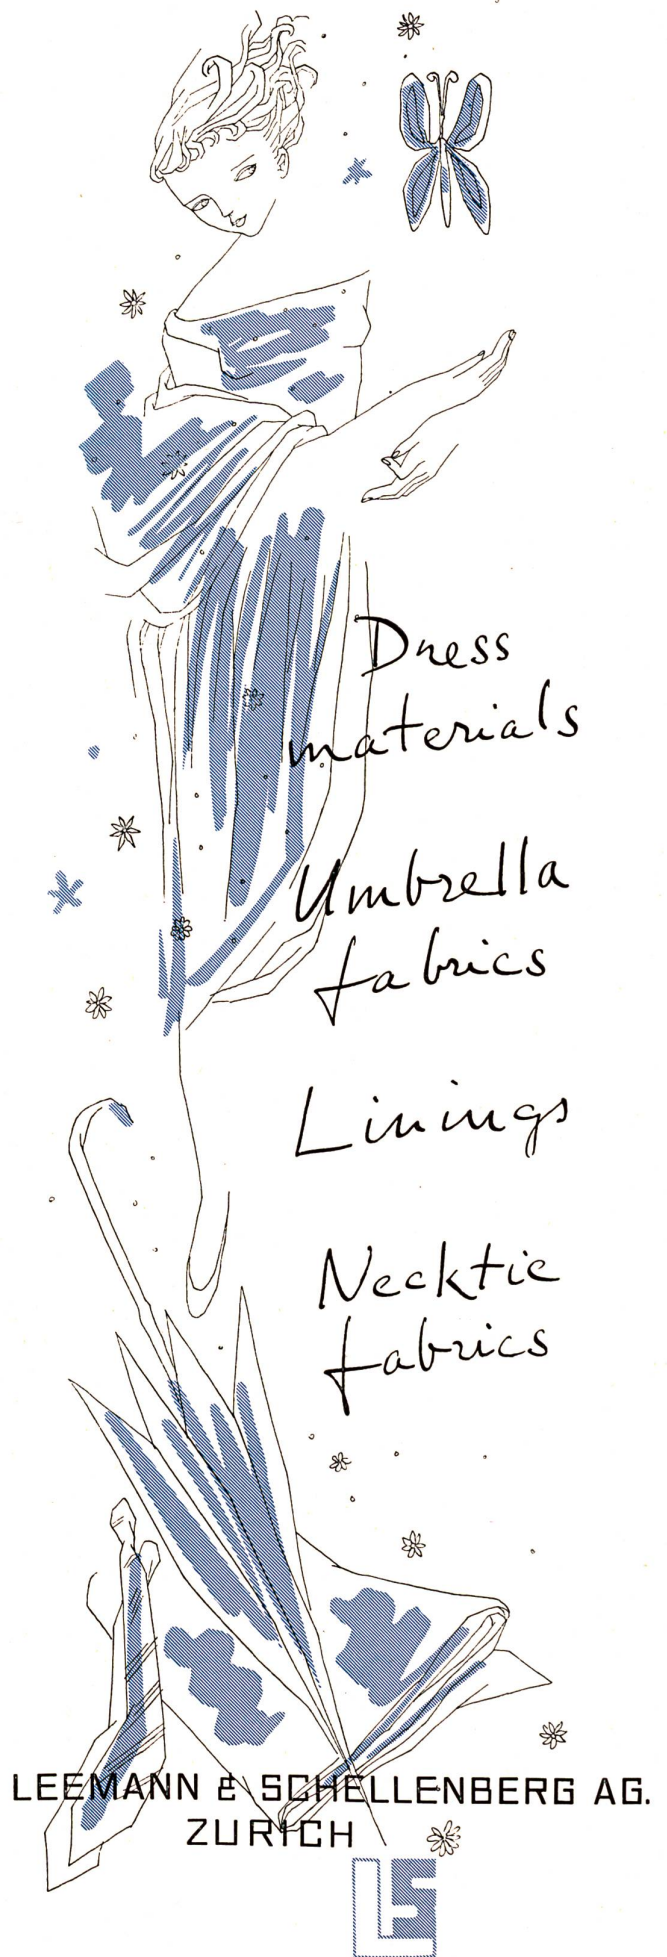 Dress
materials
Umbrella
fabrics
Linings
Necktie
fabrics
LEEMANN & SCHELLENBERG AG.
ZURICH
LS